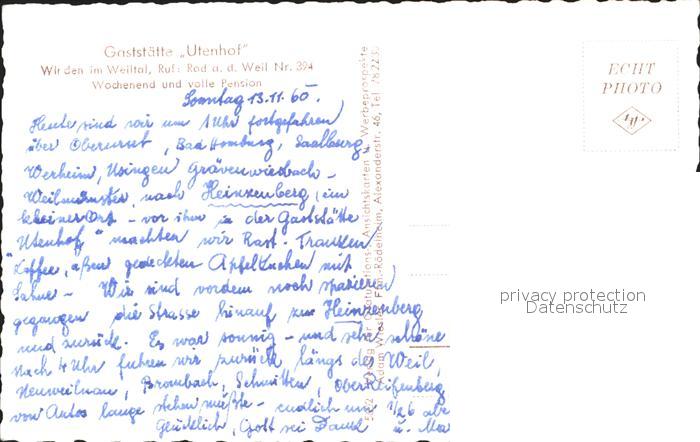 Gaststätte „Utenhof"
Winden im Weiltal, Ruf: Rod a. d. Weil Nr. 394
Wochenend und volle Pension
Sonntag 13.11.60.
Heute sind wir um 1 Uhr fortgefahren
über Oberursel, Bad Homburg, Saalburg,
Werheim, Usingen Grävenwiesbach -
Weilmünster, nach Heinzenberg, ein
kleiner Ort - vor ihm in der Gaststätte
"Utenhof" machten wir Rast. Tranken
Kaffee, aßen gedeckten Apfelkuchen mit
Sahne - Wir sind vordem noch spazieren
gegangen die Strasse hinauf zu Heinzenberg
und zurück. Es war sonnig - und sehr schöne
nach 4 Uhr fuhren wir zurück längs der Weil,
Neuweilnau, Brombach, Schmitten, Oberreifenberg
von Autos lange stehen mußte - endlich um 1/2 6
Glücklich, Gott sei Dank u.
Ansichtskarten - Werbeprospekte
Ffm.-Rödelheim, Alexanderstr. 46, Tel. 78 22 30
ECHT
PHOTO
Agfa
privacy protection
Datenschutz